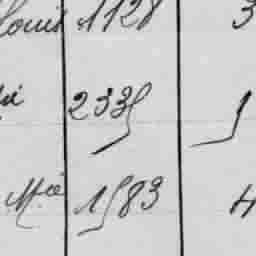 Louis 1128 3
2335 1
M.ie 1583 4